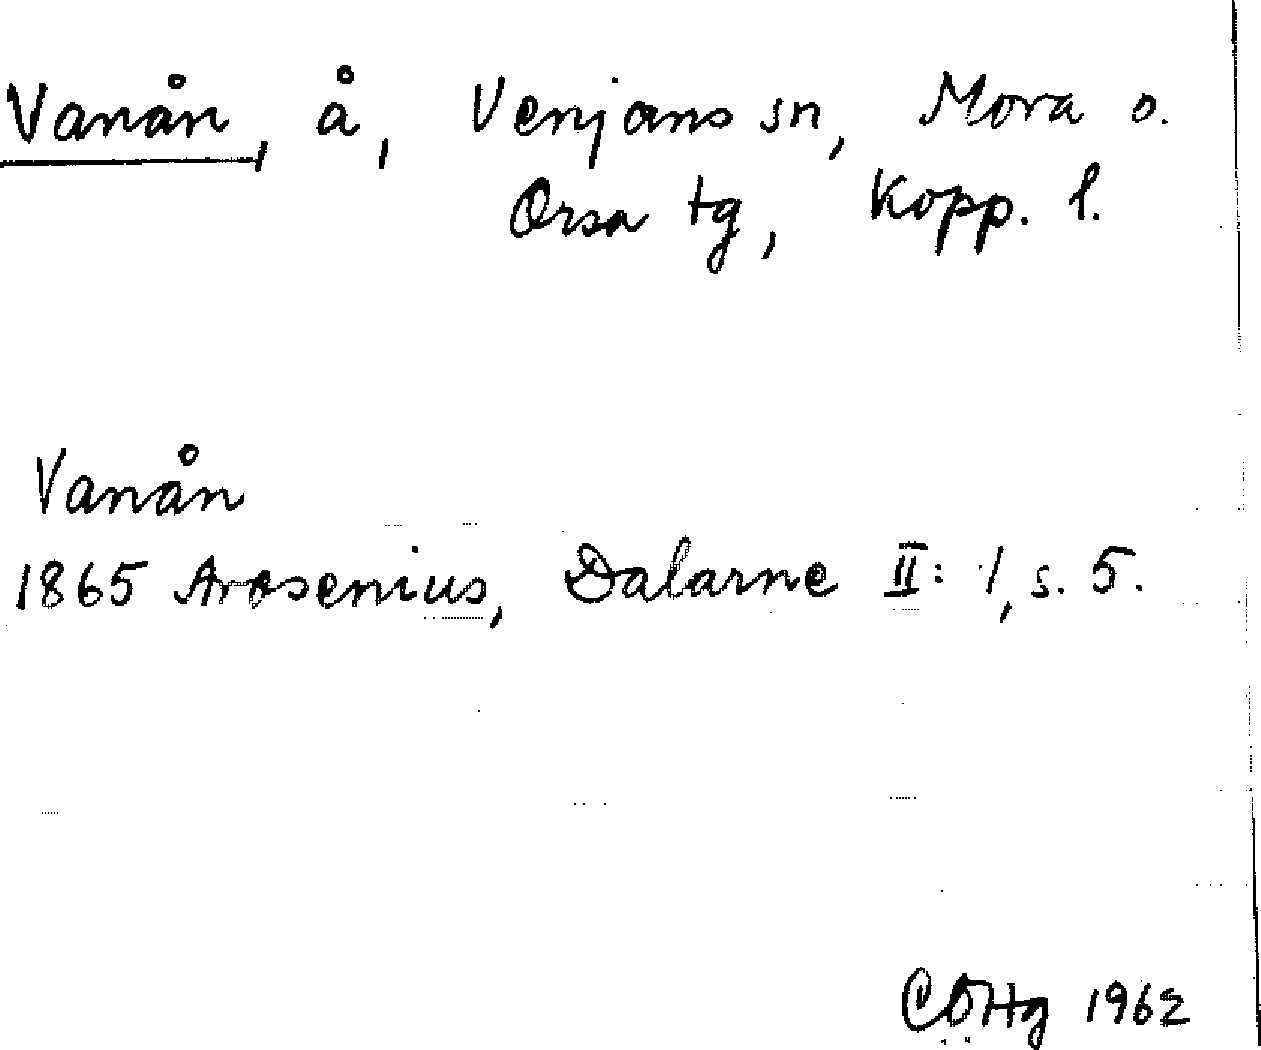 Vanån, å, Venjans sn, Mora o.
Orsa tg, Kopp. l.
Vanån
1865 Arosenius, Dalarne II: 1, s. 5.
CÖHg 1962